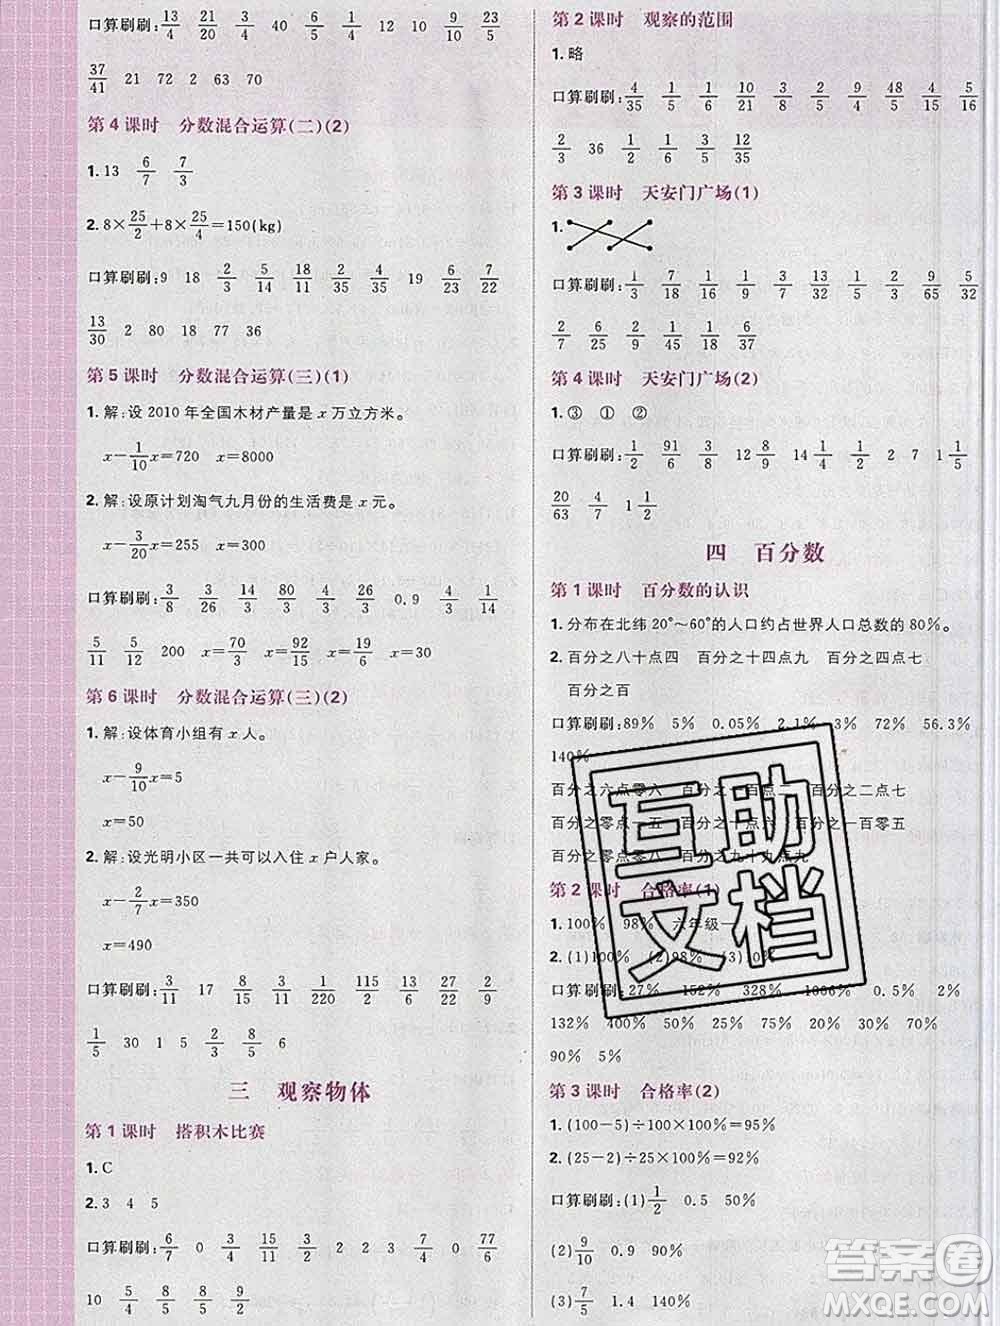 口算刷刷: 13/4 21/20 3/4 40 6/5 1/4 12 10 9/4 5/6
37/41 21 72 2 63 70
第 4 课时 分数混合运算(二)(2)
1. 13 6/7 7/3
2. 8×25/2+8×25/4=150(kg)
口算刷刷: 9 18 2/3 5/14 18/11 2/35 4/35 19 6/23 7/22
13/30 2 80 18 77 36
第 5 课时 分数混合运算(三)(1)
1. 解:设 2010 年全国木材产量是 x 万立方米。
x-1/10x=720 x=8000
2. 解:设原计划淘气九月份的生活费是 x 元。
x-3/20x=255 x=300
口算刷刷: 3/8 3/26 14/3 9/34 3/26 34/3 0.9 4/3 1/14
5/11 5/12 200 x=70/3 x=92/50 x=10/3
第 6 课时 分数混合运算(三)(2)
1. 解:设体育小组有 x 人。
x-9/10x=5
x=50
2. 解:设光明小区一共可以入住 x 户人家。
x-2/7x=350
x=490
口算刷刷: 3/11 17 8/15 3/11 1/220 115/2 13/6 6/13 2/27 2/9
1/5 30 1 5 2/3 8/5 6
三 观察物体
第 1 课时 搭积木比赛
1. C
2. 3 4 5
口算刷刷: 6/7 0 3/4 15/11 3/2 2 2 3 7/4 0 77/6
10 5/4 8/5 9/2
第 2 课时 观察的范围
1. 略
口算刷刷: 4/35 1/5 1/6 10/21 3/8 2/3 9/4 48/5 4/15 5/16
2/3 36 1/4 3/10 12/35
第 3 课时 天安门广场(1)
1.
口算刷刷: 1/3 7/18 1/16 1/18 1/3 1/6 1/3 2/5 9/65 5/14
2/7 6/35 1/2 1/6 6/37
第 4 课时 天安门广场(2)
1. ③ ① ②
口算刷刷: 1/2 91/6 3/8 12 8/9 14 1/2 2 7 1 1/9
20/63 4/7 1 1/2
四 百分数
第 1 课时 百分数的认识
1. 分布在北纬 20°~60°的人口约占世界人口总数的 80%。
2. 百分之八十点四 百分之十四点九 百分之四点七
百分之百
口算刷刷: 89% 5% 0.05% 2.1% 3% 72% 56.3%
140%
百分之六点零六 百分之一百点二 百分之二点七
百分之零点一五 百分之十点六 百分之一百零五
百分之零点零八 百分之九十九点九
第 2 课时 合格率(1)
1. 100% 98% 六年级一
2. (1)100% (2)98% (3)10%
口算刷刷: 27% 152% 328% 1006% 0.5% 2%
132% 400% 50% 25% 75% 20% 30%
90% 5%
第 3 课时 合格率(2)
1. (100-5)÷100×100%=95%
2. (25-2)÷25×100%=92%
口算刷刷: (1)1/2 0.5 50%
(2)9/10 0.9 90%
(3)7/5 1.4 140%
互助
文档
答案圈
MXQE.COM